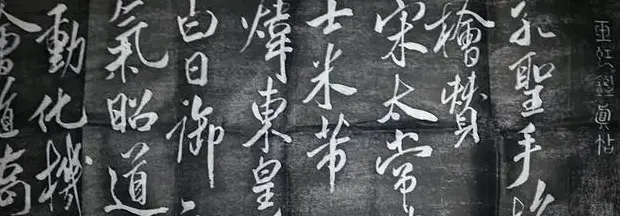 真帖
孔聖手
檜贊
宋太常
士米芾
煒東皇
白日御
氣昭道
動化機
檜植矯